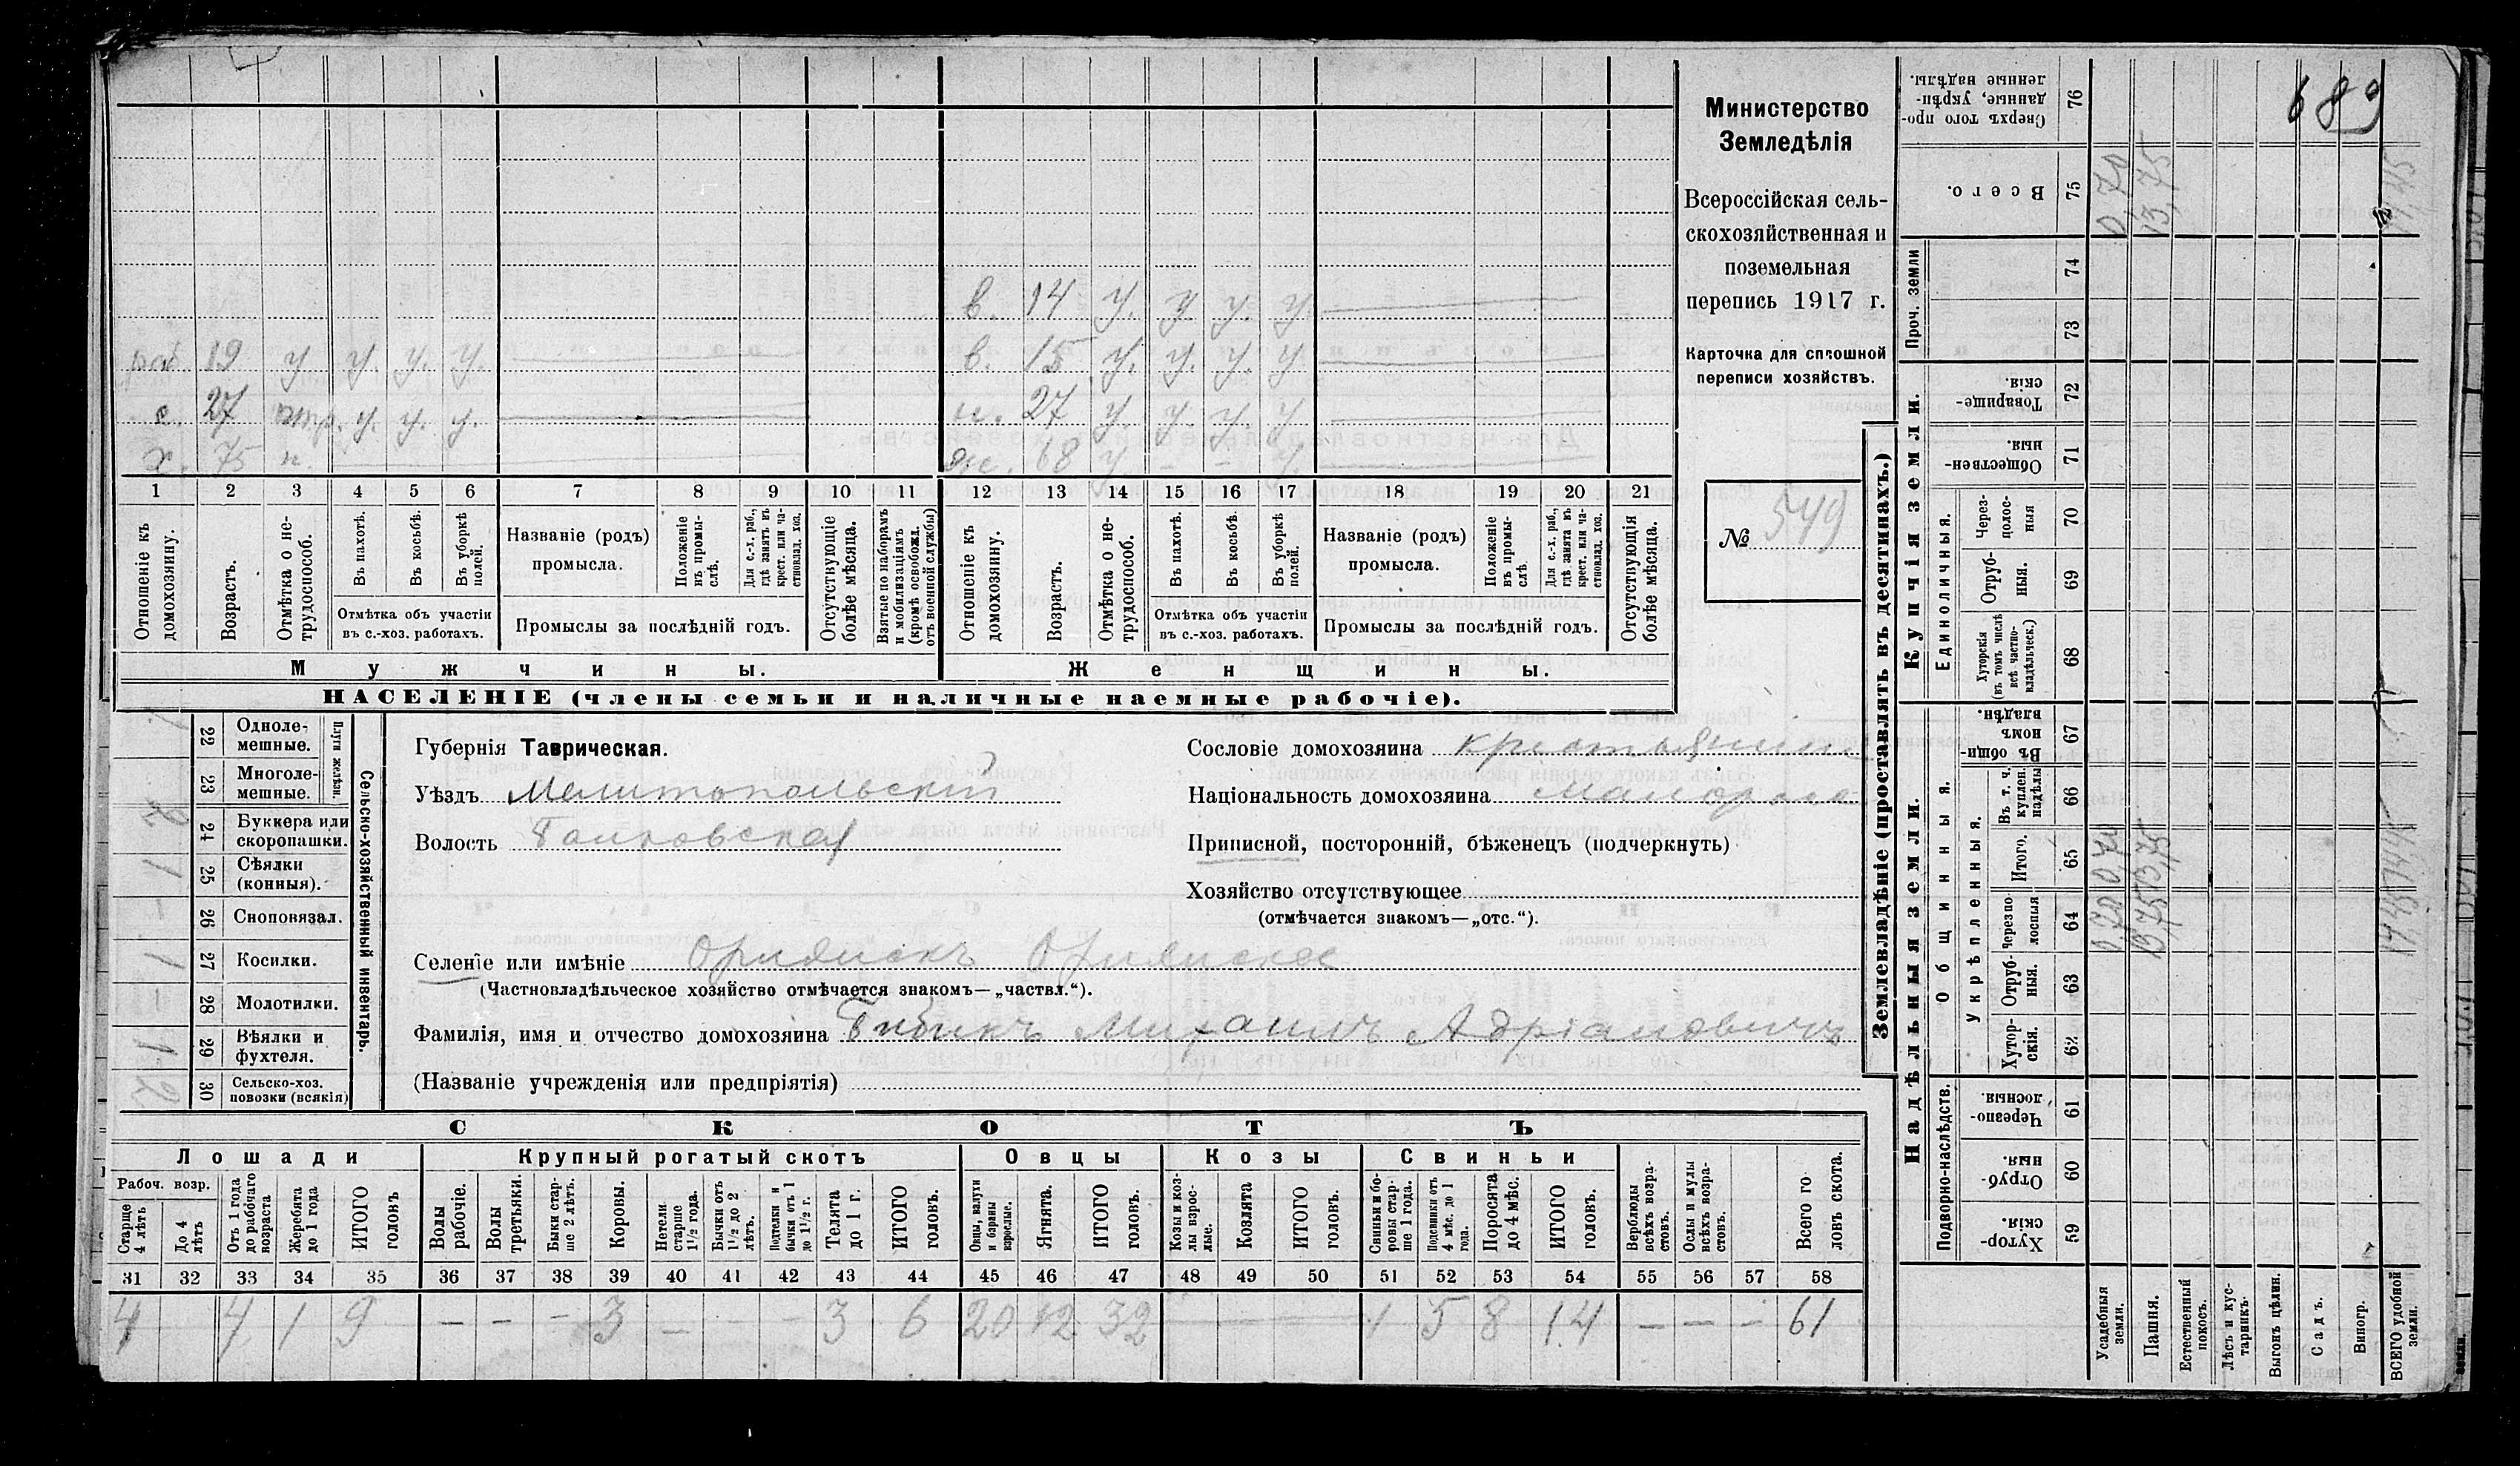 689
Министерство
Земледѣлія
Всероссійская сель-
скохозяйственная и
поземельная
перепись 1917 г.
Карточка для сплошной
переписи хозяйствъ.
№ 549
в. 14 у. у. у. у.
раб. 19 у. у. у. у.
в. 15 у. у. у. у.
с. 27 у. у. у.
н. 27 у. у. у. у.
х. 75 н.
ж. 68 у. – – у.
1 2 3 4 5 6 7 8 9 10 11 12 13 14 15 16 17 18 19 20 21
Отношеніе къ домохозяину.
Возрастъ.
Отмѣтка о не-трудоспособ.
Въ пахотѣ.
Въ косьбѣ.
Въ уборкѣ полей.
Отмѣтка объ участіи
въ с.-хоз. работахъ.
Названіе (родъ)
промысла.
Положеніе въ промы-слѣ.
Для с.-х. раб., гдѣ занятъ въ крест. или ча-стновлад. хоз.
Промыслы за послѣдній годъ.
Отсутствующіе болѣе мѣсяца.
Взятые по наборамъ и мобилизаціямъ (кромѣ освобожд. отъ военной службы)
Отношеніе къ домохозяину.
Возрастъ.
Отмѣтка о не-трудоспособ.
Въ пахотѣ.
Въ косьбѣ.
Въ уборкѣ полей.
Отмѣтка объ участіи
въ с.-хоз. работахъ.
Названіе (родъ)
промысла.
Положеніе въ промы-слѣ
Для с.-х. раб., гдѣ занята въ крест. или ча-стновлад. хоз.
Промыслы за послѣдній годъ.
Отсутствующія болѣе мѣсяца.
Мужчины.
Женщины.
НАСЕЛЕНІЕ (члены семьи и наличные наемные рабочіе).
Сельско-хозяйственный инвентарь.
Плуги желѣзн.
22 Одноле-мешные.
23 Многоле-мешные.
24 Буккера или скоропашки. 2
25 Сѣялки (конныя). 1
26 Сноповязал. –
27 Косилки. 1
28 Молотилки. –
29 Вѣялки и фухтеля. 1
30 Сельско-хоз. повозки (всякія) 2
Губернія Таврическая.
Уѣздъ Мелитопольскій
Волость
Сословіе домохозяина крестьянинъ
Національность домохозяина малоросс
Приписной, посторонній, бѣженецъ (подчеркнуть)
Хозяйство отсутствующее
(отмѣчается знакомъ—„отс.“).
Селеніе или имѣніе
(Частновладѣльческое хозяйство отмѣчается знакомъ—„частвл.“).
Фамилія, имя и отчество домохозяина Гибикъ Михаилъ Адріановичъ
(Названіе учрежденія или предпріятія)
СКОТЪ
Лошади
Крупный рогатый скотъ
Овцы
Козы
Свиньи
Рабоч. возр.
Старше 4 лѣтъ
До 4 лѣтъ
Отъ 1 года до рабочаго возраста
Жеребята до 1 года
ИТОГО головъ
Волы рабочіе.
Волы третьяки.
Быки стар-ше 2 лѣтъ.
Коровы.
Нетели старше 1½ года.
Бычки отъ 1½ до 2 лѣтъ.
Подтелки и бычки отъ 1 до 1½ г.
Телята до 1 г.
ИТОГО головъ.
Овцы, валухи и бараны взрослые.
Ягнята.
ИТОГО головъ.
Козы и коз-лы взрос-лые.
Козлята
ИТОГО головъ.
Свиньи и бо-ровы стар-ше 1 года.
Подсвинки отъ 4 мѣс. до 1 года.
Поросята до 4 мѣс.
ИТОГО головъ.
Верблюды всѣхъ возра-стовъ.
Ослы и мулы всѣхъ возра-стовъ.
Всего го-ловъ скота.
31 32 33 34 35 36 37 38 39 40 41 42 43 44 45 46 47 48 49 50 51 52 53 54 55 56 57 58
4 4 1 9 – – – 3 – – – 3 6 20 12 32 – – – 1 5 8 14 – – – 61
Землевладѣніе (проставлять въ десятинахъ.)
Купчія земли.
Надѣльныя земли.
76 Сверхъ того про-данные, укрѣп-ленные надѣлы.
75 Всего. 0,70 13,75 14,45
Проч. земли
74
73
72 Товарище-скія.
71 Обществен-ныя.
Единоличныя.
70 Через-полос-ныя
69 Отруб-ныя.
68 Хуторскія (въ томъ числѣ всѣ частно-владѣльческ.)
Общинныя.
67 Въ общи-номъ владѣн.
Укрѣпленныя.
66 Въ т. ч. куплен. надѣлы
65 Итого. 0,70 13,75 14,45
64 Черезпо-лосныя 0,70 13,75 14,45
63 Отруб-ныя.
62 Хутор-скія.
Подворно-наслѣдств.
61 Черезпо-лосныя.
60 Отруб-ныя.
59 Хутор-скія.
Усадебныя земли.
Пашня.
Естественный покосъ.
Лѣсъ и кус-тарникъ.
Выгонъ цѣлин.
Садъ.
Виногр.
ВСЕГО удобной земли.